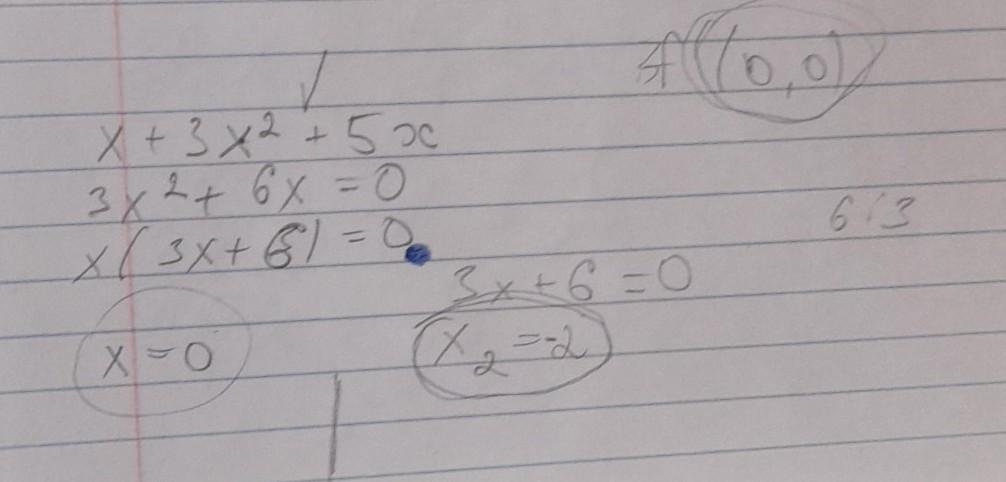 (0,0)
x + 3x² + 5x
3x² + 6x = 0
x(3x+6) = 0
6:3
3x+6 = 0
x = 0
x₂ = -2